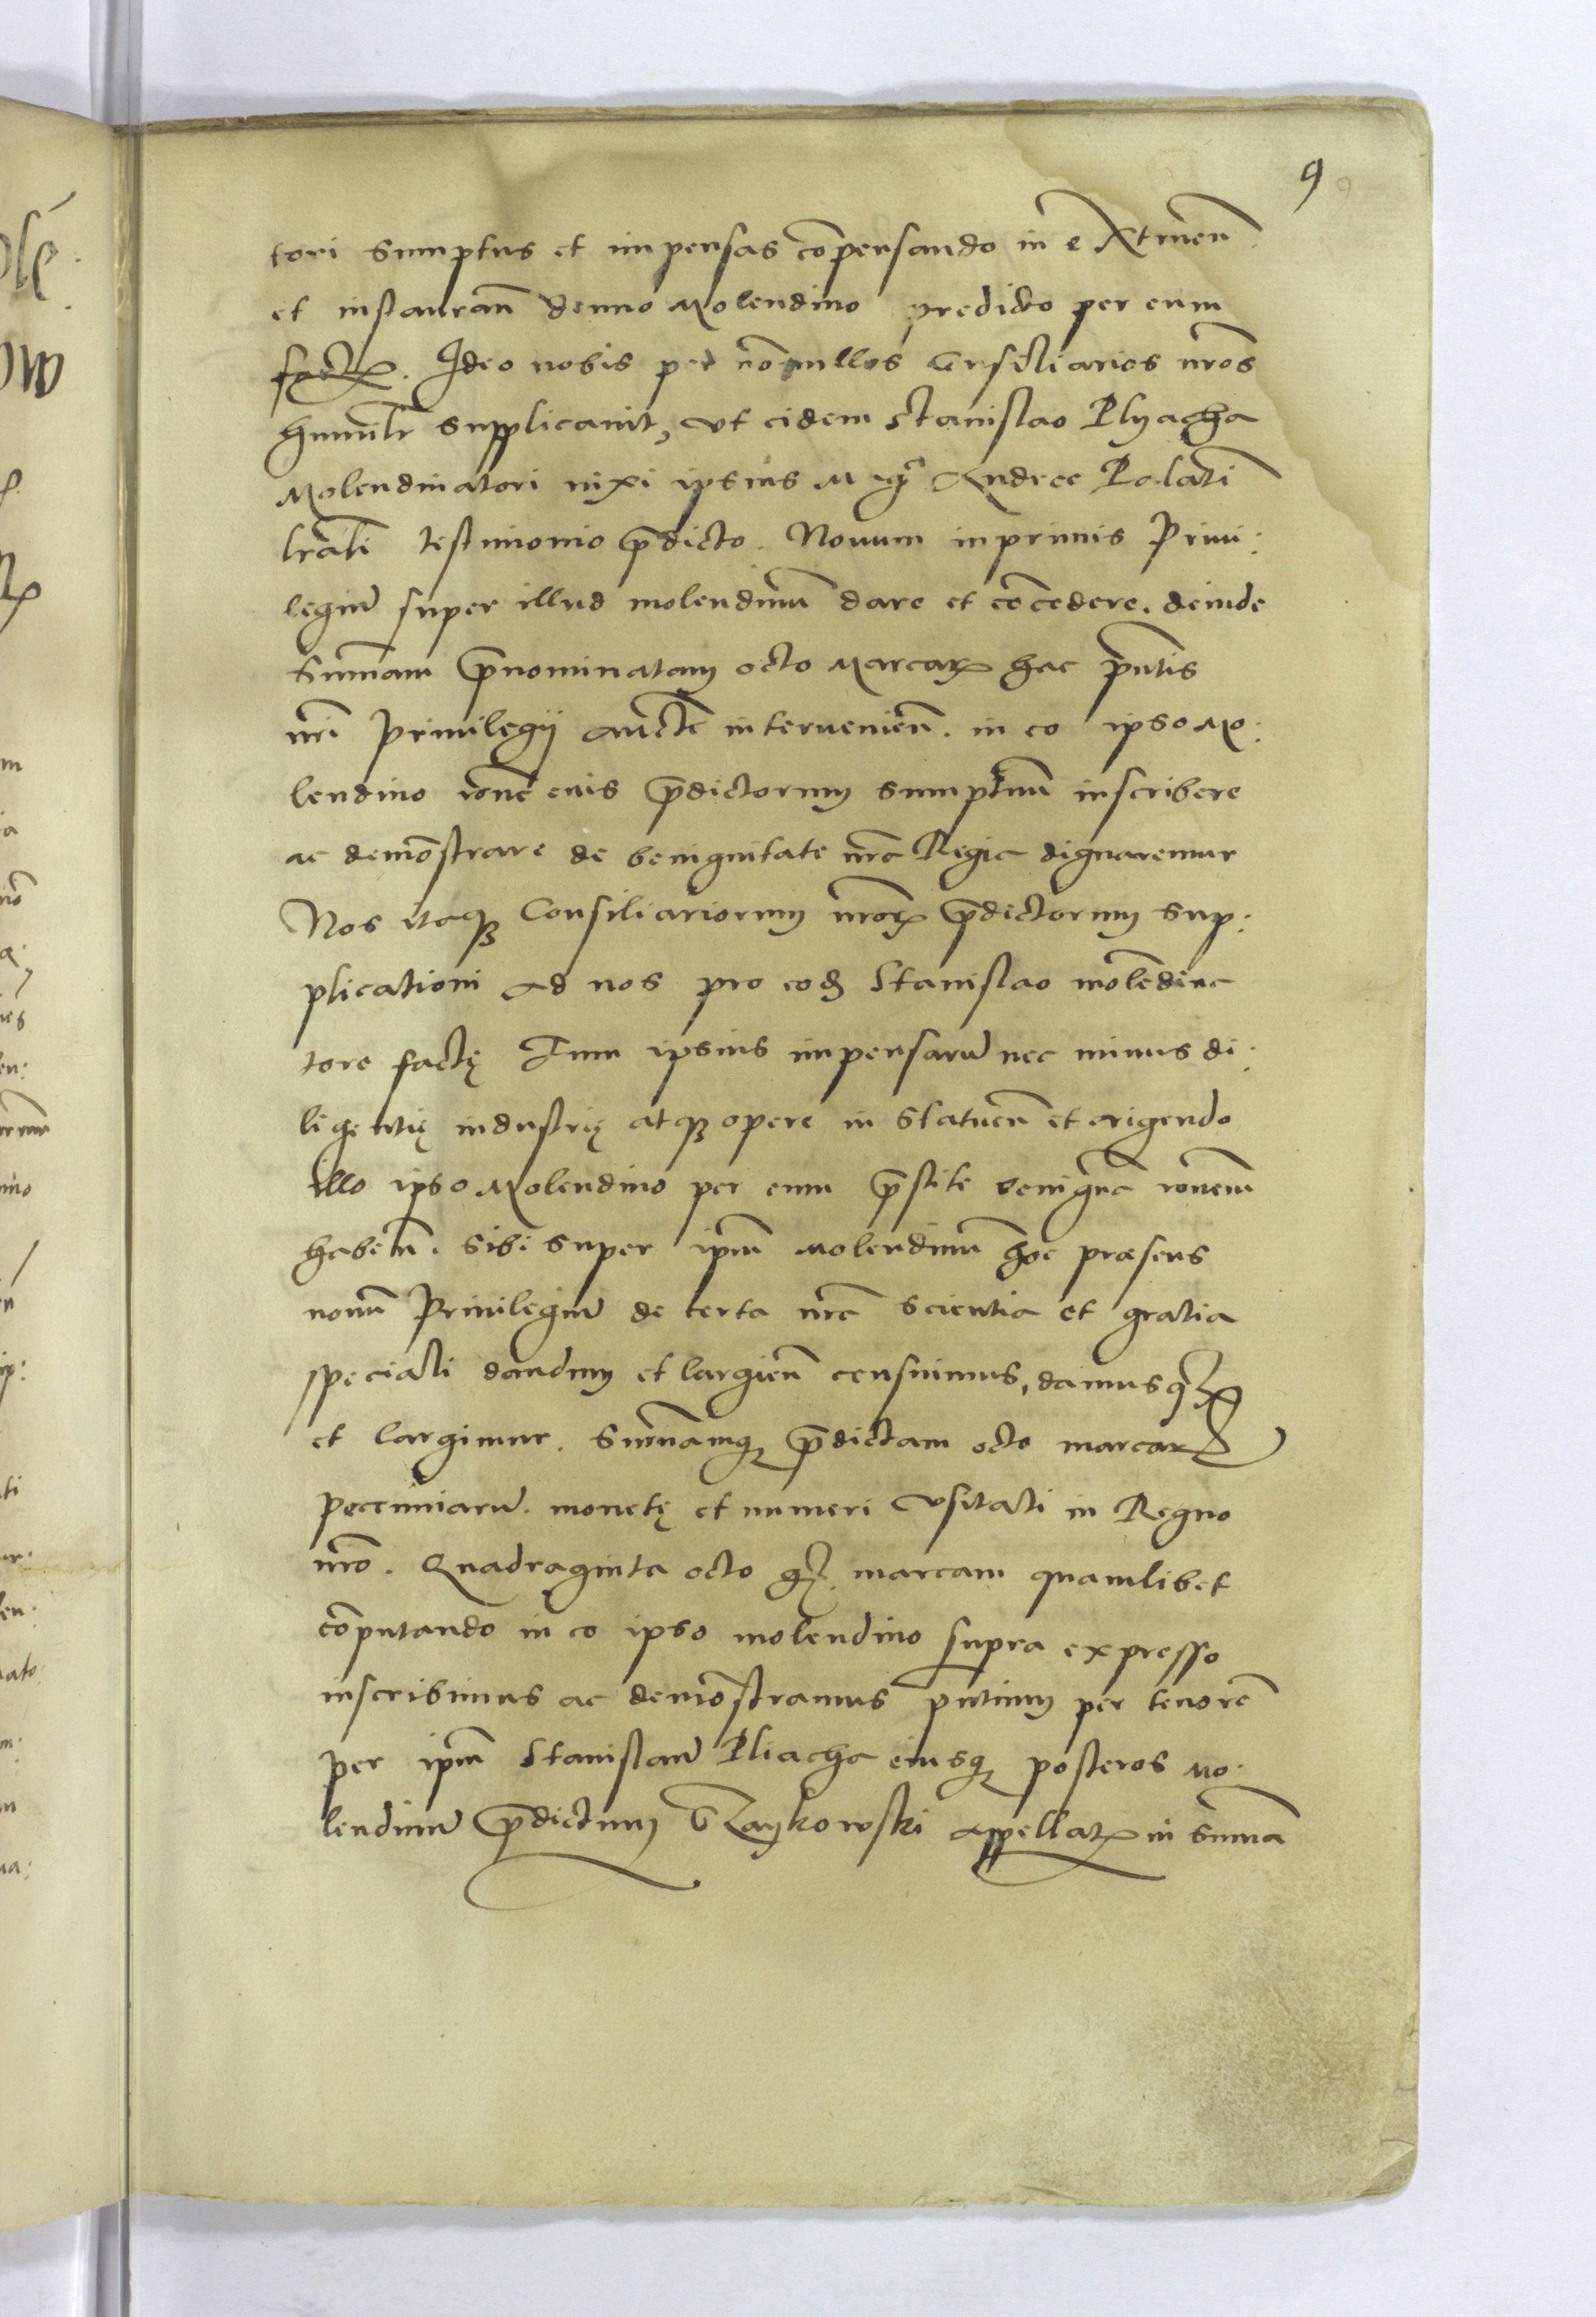 9
tori sumptus et impensas cõpensando in extruen̄
et instauran̄ denuo Molendino predicto per eum
fact. Ideo nobis per nõnullos Consiliarios nr̃os
humilr̃ supplicauit, vt eidem Stanislao Plyacha
Molendinatori nixi ipsius M gci Andree Palati
lr̃ali testimonio p̃dicto. Nouum inprimis Priui:
legiũ super illud molendinũ dare et cõcedere. deinde
Sum̃am p̃nominatam octo Marcar hac pñtis
nr̃i Priuilegij aucte interuenien̄. in eo ipso Mo:
lendino rõne eius p̃dictorum sumptuũ inscribere
ac demõstrare de benignitate nr̃a Regia dignaremur
Nos itaq Consiliariorum nr̃or p̃dictorum sup:
plicationi ad nos pro eod Stanislao molẽdina
tore factę Tum ipsius impensarũ nec minus di:
ligentię industrię atq opere in statuen̄ et erigendo
illo ipso Molendino per eum p̃stite benignã rõnem
haben̄. sibi super ip̃m Molendinum hoc præsens
nouũ Priuilegiũ de certa nr̃a scientia et gratia
speciali dandum et largien̄ censuimus, damusq
et largimur. Sum̃amq p̃dictam octo marcar
pecuniarũ. monetę et numeri vsitati in Regno
nr̃o. Quadraginta octo gr. marcam quamlibet
cõputando in eo ipso molendino supra expresso
inscribimus ac demõstramus pñtium per tenorẽ
per ip̃m Stanislaũ Pliacha eiusq posteros Mo:
lendinũ p̃dictum appellat in sum̃a